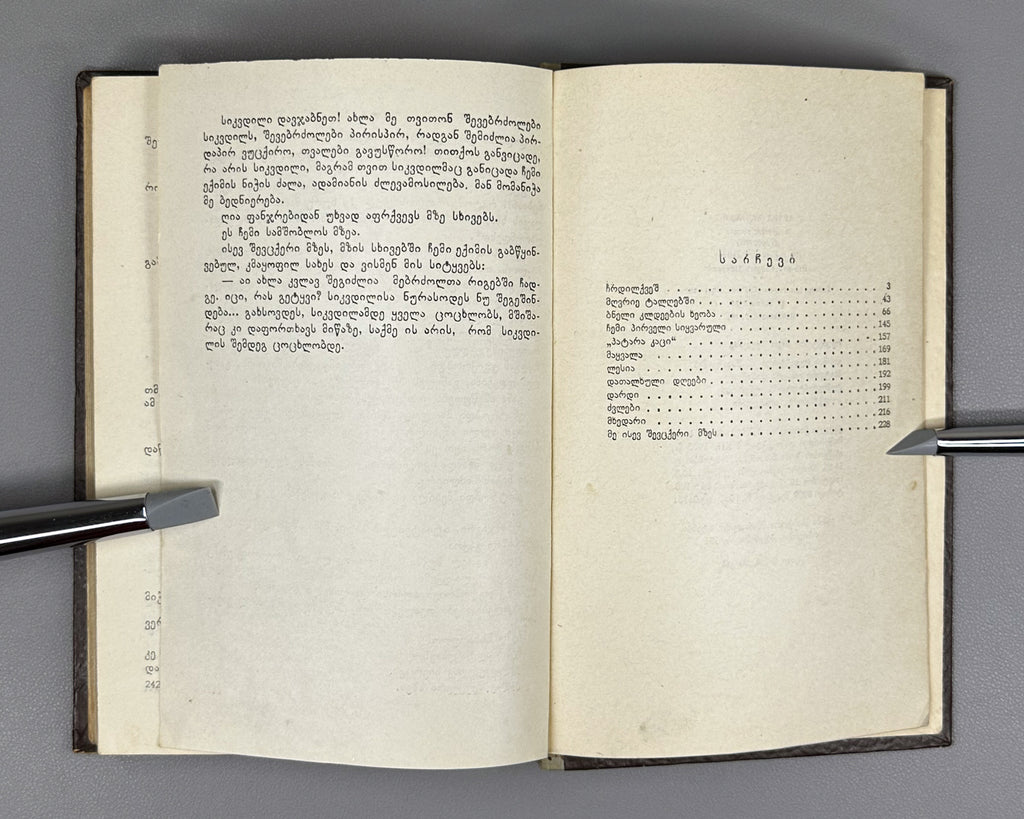 სიკვდილი დავჯაბნეთ! ახლა მე თვითონ შევებრძოლები
სიკვდილს, შევებრძოლები პირისპირ, რადგან შემიძლია პირ-
დაპირ ვუცქირო, თვალები გავუსწორო! თითქოს განვიცადე,
რა არის სიკვდილი, მაგრამ თვით სიკვდილმაც განიცადა ჩემი
ექიმის ნიჭის ძალა, ადამიანის ძლევამოსილება. მან მომანიჭა
მე ბედნიერება.
ღია ფანჯრებიდან უხვად აფრქვევს მზე სხივებს.
ეს ჩემი სამშობლოს მზეა.
ისევ შევცქერი მზეს, მზის სხივებში ჩემი ექიმის გაბწყინ-
ვებულ, კმაყოფილ სახეს და ვისმენ მის სიტყვებს:
— აი ახლა კვლავ შეგიძლია მებრძოლთა რიგებში ჩად-
გე. იცი, რას გეტყვი? სიკვდილისა ნურასოდეს ნუ შეგეშინ-
დება... გახსოვდეს, სიკვდილამდე ყველა ცოცხლობს, მშიშა-
რაც კი დაფორთხავს მიწაზე, საქმე ის არის, რომ სიკვდი-
ლის შემდეგ ცოცხლობდე.
შე
რი
გა
თმ
ამ
ვერ
კე
და
242
სარჩევი
ჩრდილქვეშ . . . . . . . . . . 3
მღვრიე ტალღებში . . . . . . . . . . 43
ბნელი კლდეების ხეობა . . . . . . . . . . 66
ჩემი პირველი სიყვარული . . . . . . . . . . 145
„პატარა კაცი“ . . . . . . . . . . 157
მაყვალა . . . . . . . . . . 169
ლესია . . . . . . . . . . 181
დათალხული დღეები . . . . . . . . . . 192
დარდი . . . . . . . . . . 199
ძვლები . . . . . . . . . . 211
მხედარი . . . . . . . . . . 216
მე ისევ შევცქერი მზეს . . . . . . . . . . 228